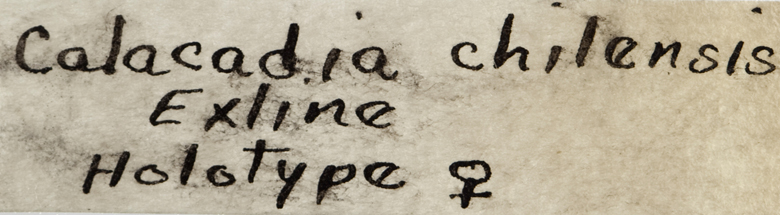 Calacadia chilensis
Exline
Holotype ♀